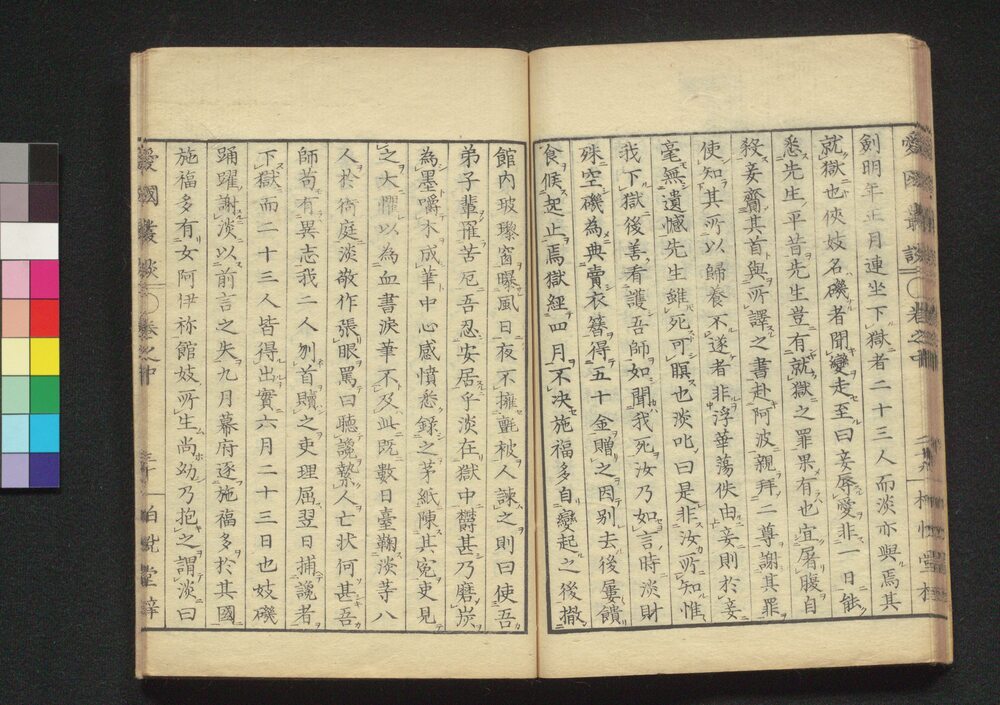 劍明年正月連坐下獄者二十三人而淡亦與焉其
就獄也俠妓名磯者聞變走至曰妾辱愛非一日能
悉先生平昔先生豈有就獄之罪果有也宜屠腹自
殺妾齎其首與所譯之書赴阿波親拜二尊謝其罪
使知其所以歸養不遂者非浮華蕩佚由妾則於妾
毫無遺憾先生雖死可瞑也淡叱曰是非汝所知惟
我下獄後善看護吾師如聞我死汝乃如言時淡財
殊空磯為典賣衣簪得五十金贈之因別去後屢饋
食候起止焉獄經四月不決施福多自變起之後撤
館內玻瓈窗曝風日夜不擁氈被人諫之則曰使吾
弟子輩罹苦厄吾忍安居乎淡在獄中欝甚乃磨炭
為墨嚼木成筆中心感憤悉錄之茅紙陳其寃吏見
之大懼以為血書淚筆不及此既數日臺鞠淡等八
人於衙庭淡敬作張眼罵曰聽讒縶人亡状何甚吾
師苟有異志我二人刎首贖之吏理屈翌日捕讒者
下獄而二十三人皆得出實六月二十三日也妓磯
踊躍謝淡以前言之失九月幕府逐施福多於其國
施福多有女阿伊祢館妓所生尚幼乃抱之謂淡曰
愛國叢談
卷之中